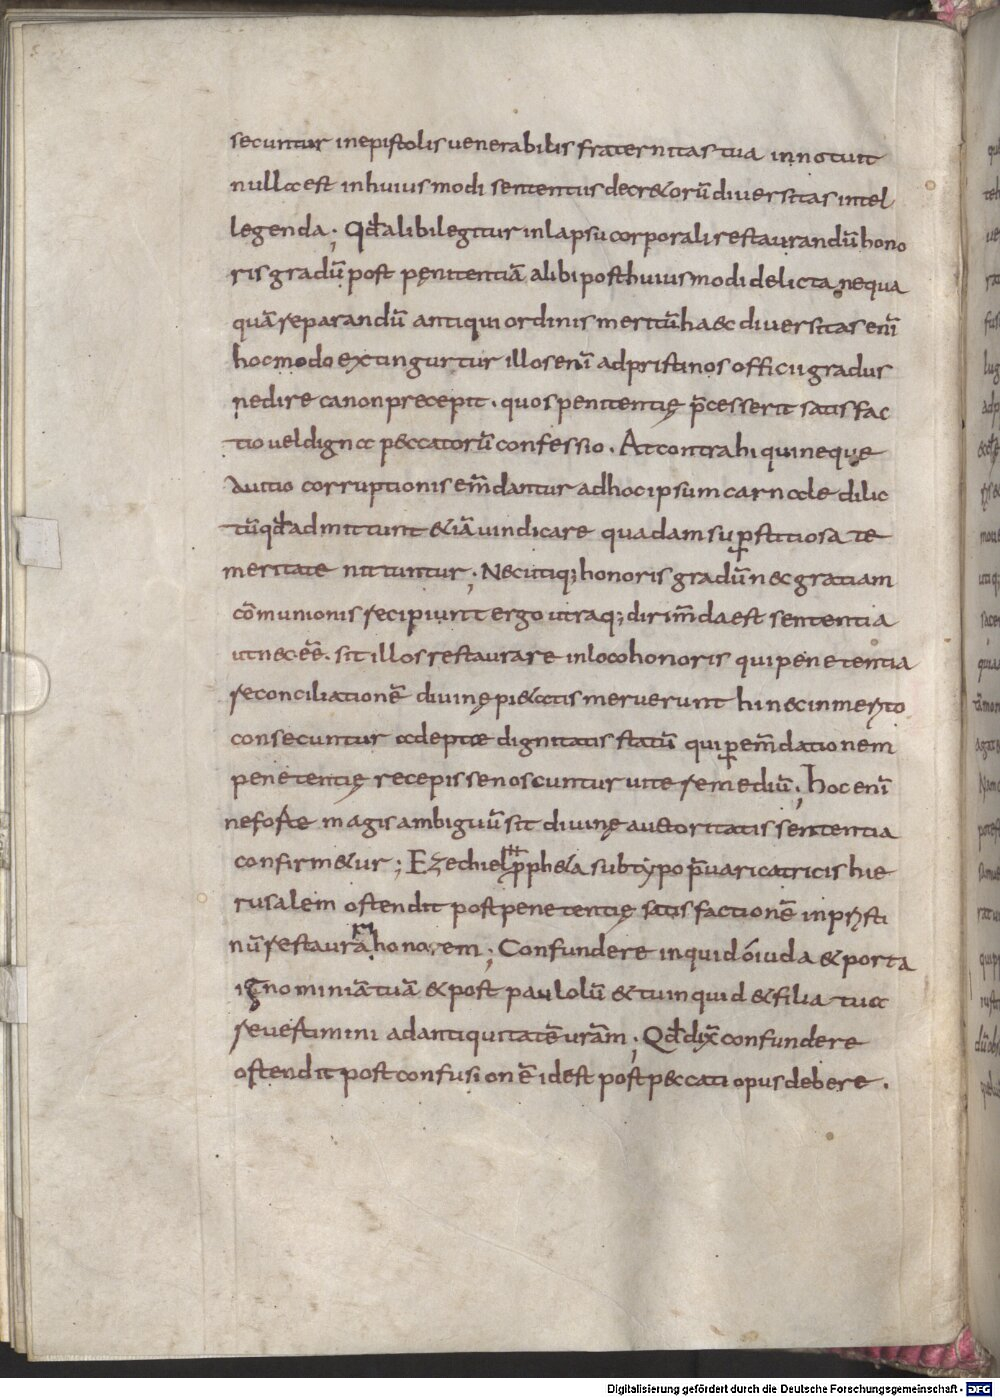 secuntur inepistolis uenerabilis fraternitas tua innotuit
nulla est inhuiusmodi sententiis decr&orū diuersitas intel
legenda; Qđ alibi legitur inlapsu corporali restaurandū hono
ris gradū post pęnitentiā alibi posthuiusmodi delicta nequa
quā reparandū antiqui ordinis meritū haec diuersitas enī
hocmodo extinguitur illos enī adpristinos officii gradus
redire canon precepit. quos penitentię p̄cesserit satisfac
tio uel digna peccatorū confessio. At contra hi quineque
auitio corruptionis em̄dantur adhoc ipsum carnale dilic
tū qđ admittunt &iā uindicare quadam sup̱stitiosa te
meritate nituntur; Nec utiq; honoris gradū nec gratiam
cōmunionis recipiunt ergo utraq; dirim̄da est sententia
utnec eē. sit illos restaurare inloco honoris qui penetentia
reconciliationē diuinę pi&atis meruerunt hi nec inmerito
consecuntur adeptae dignitatis statū qui p̱em̄dationem
penetentię recepisse noscuntur uite remediū; hoc enī
neforte magis ambiguū sit diuinę auctoritatis sententia
confirm&ur; Ezechiel p̄ph&a subtypo p̄uaricatricis hie
rusalem ostendit post penetentię satisfactionē inpristi
nū restaurā honorem; Confundere inquid ó iuda & porta
ignominiā tuā & post paululū & tu inquid & filia tua
reuestimini ad antiquitatē ur̄am; Qđ dix̄ confundere
ostendit post confusionē idest post peccati opus debere.
Digitalisierung gefördert durch die Deutsche Forschungsgemeinschaft - DFG